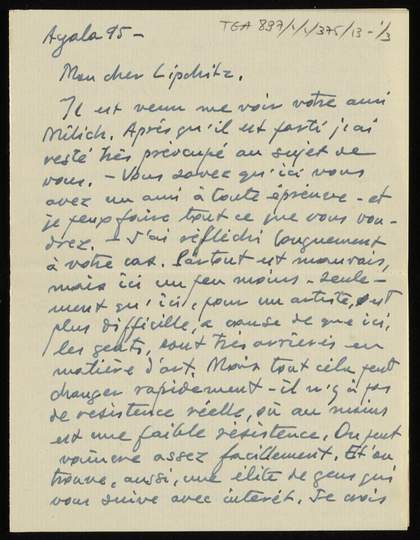 TGA 897/1/1/375/13 - 1/3
Ayala 95 -
Mon cher Lipchitz.
Il est venu me voir votre ami
Milich. Après qu'il est parti j'ai
resté très préocupé au sujet de
vous. - Vous savez qu'ici vous
avez un ami à toute épreuve - et
je peux faire tout ce que vous vou-
drez. - J'ai réfléchi longuement
à votre cas. Partout est mauvais,
mais ici un peu moins - seule-
ment qu'ici, pour un artiste, c'est
plus difficille, a cause de que ici,
les gents, sont très arrièrés en
matière d'art. Mais tout cela peut
changer rapidement - il n'y à pas
de resistence réelle, où au moins
est une faible résistence. On peut
vaincre assez facillement. Et on
trouve, aussi, une élite de gens qui
vous suive avec intérêt. Je crois